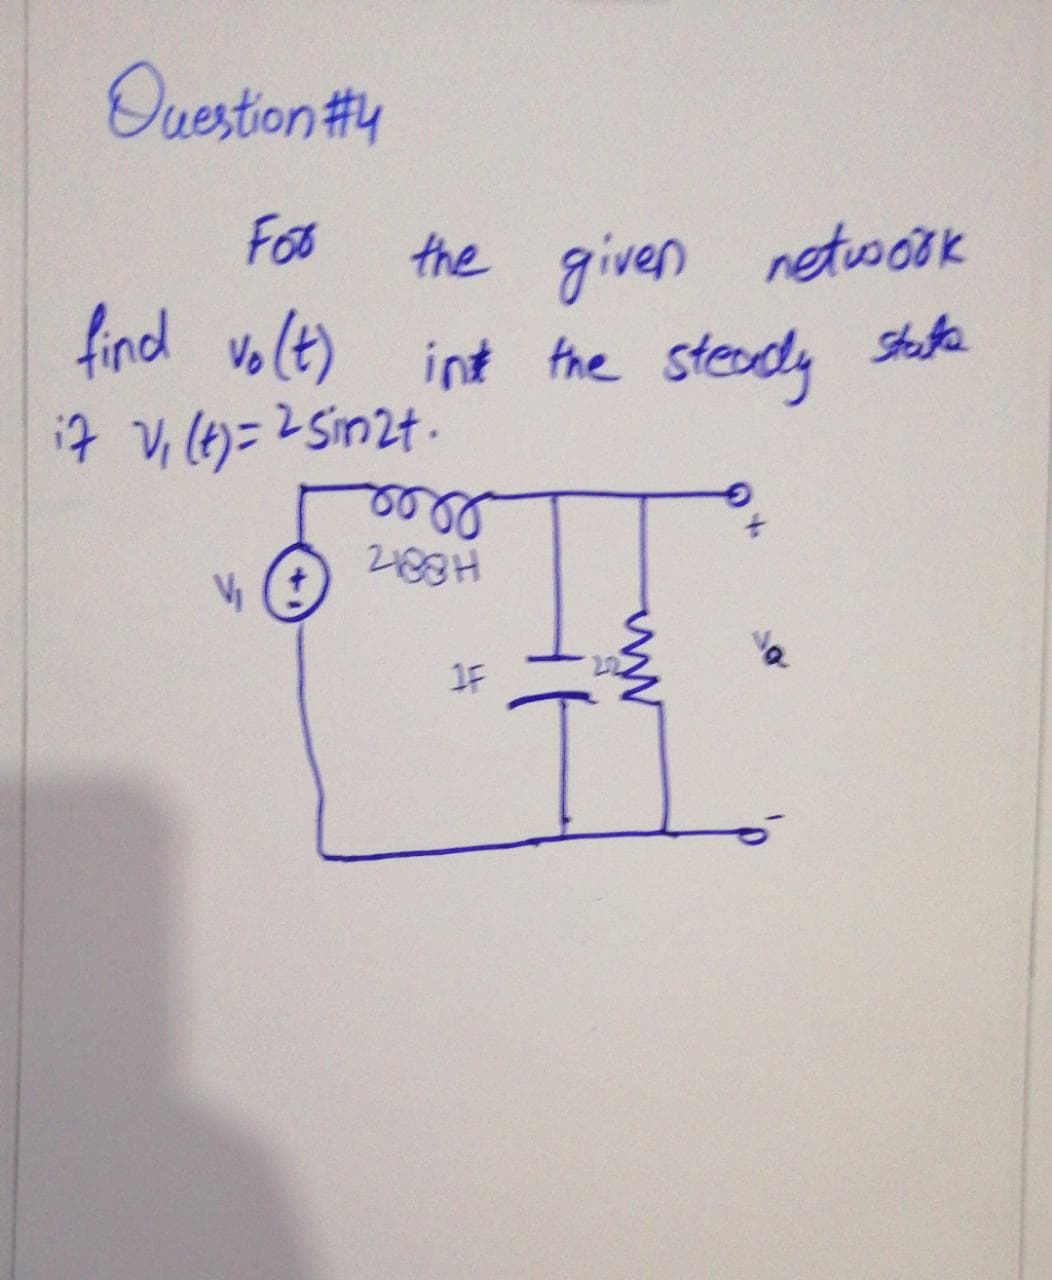 Question #4
For the given network
find v₀(t) int the steady state
if V₁(t)= 2 sin2t.
+
H
V₁ +
-
1F 2Ω
-